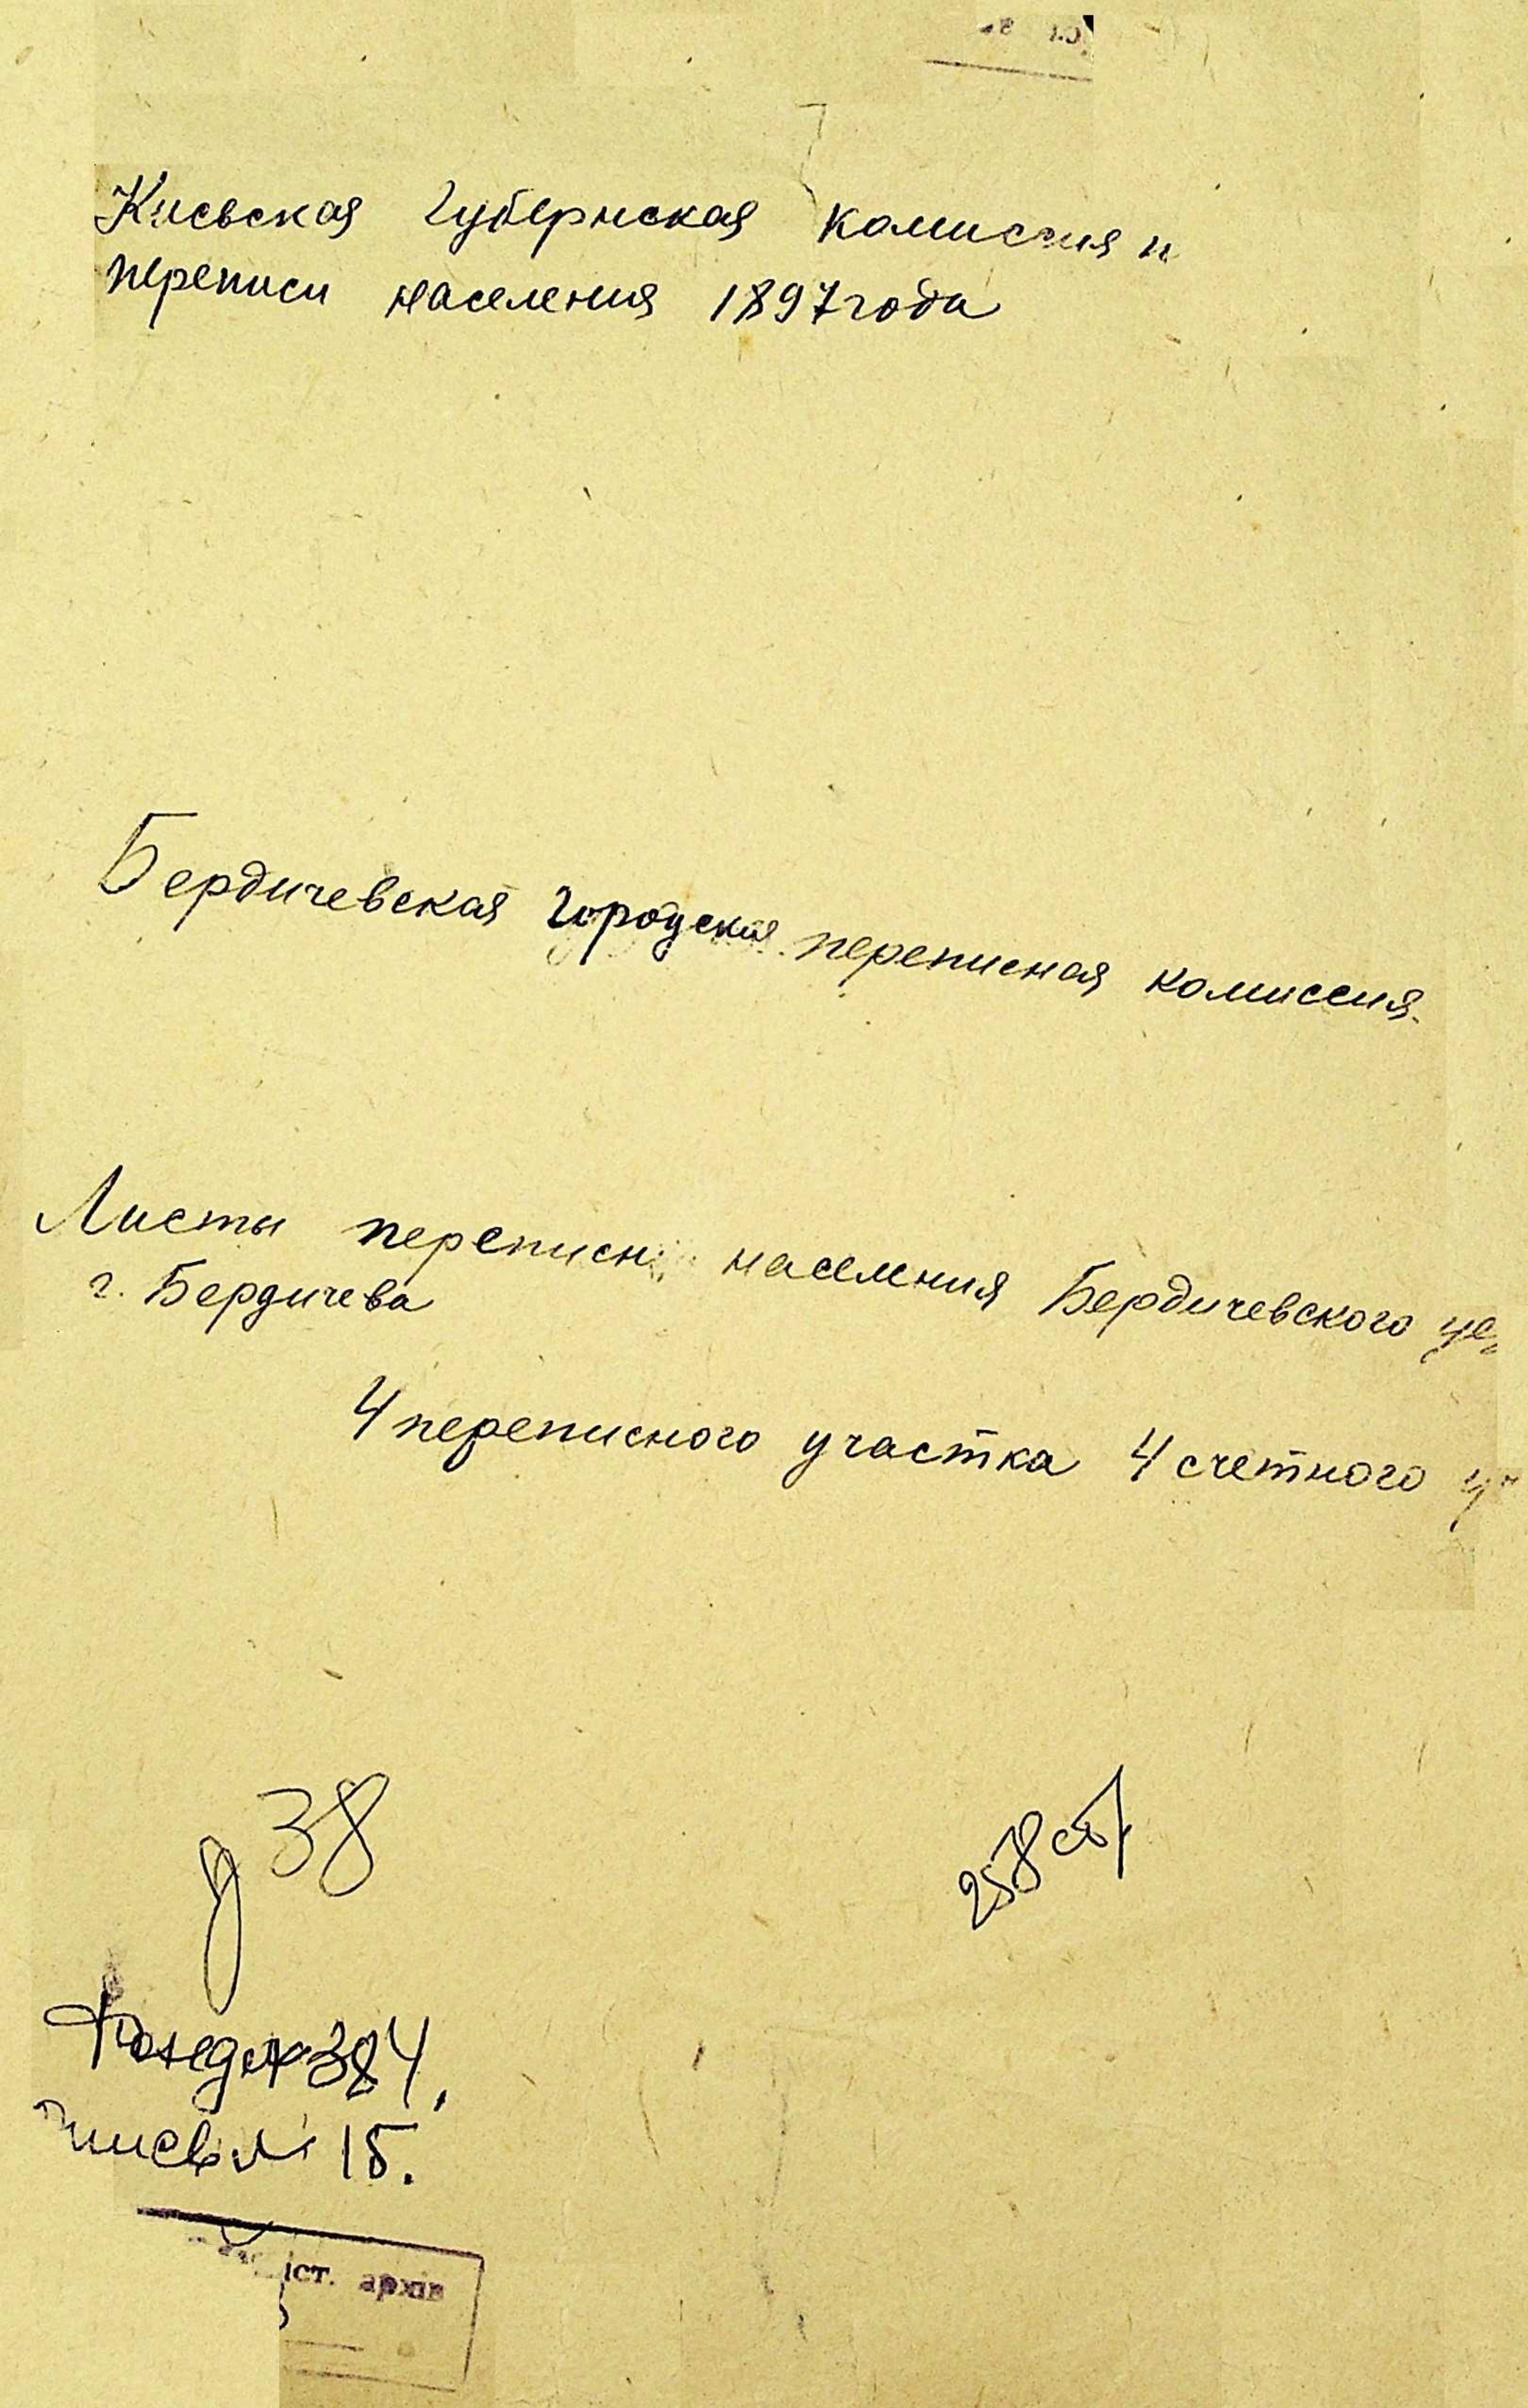 Киевская губернская комиссия п
переписи населения 1897 года
Бердичевская городская переписная комиссия.
Листы переписи населения Бердичевского уе
г. Бердичева
4 переписного участка 4 счетного уч
д 38
258
Фонд № 384,
опись № 15.
іст. архів